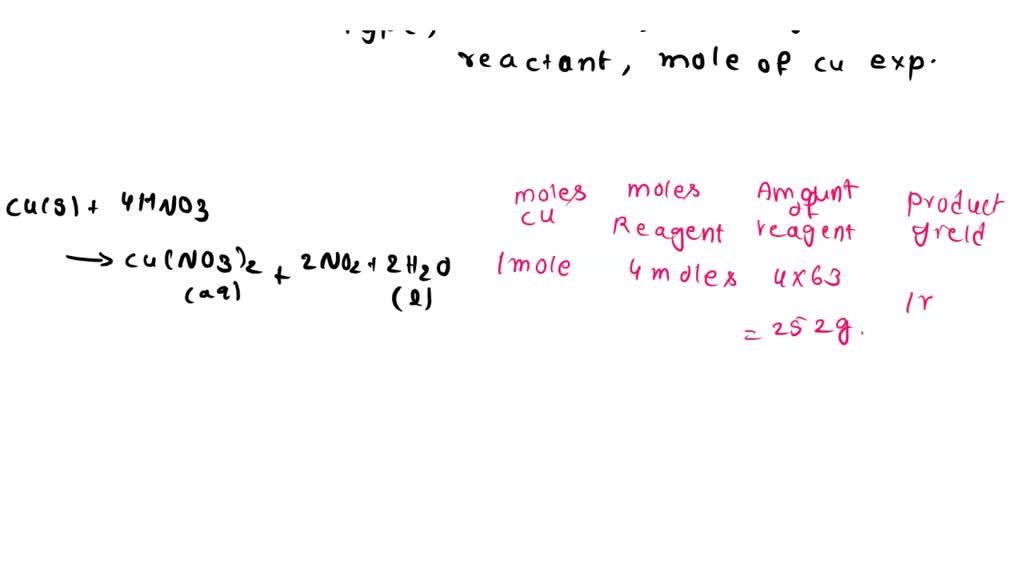 reactant, mole of cu exp.
cu(s) + 4HNO3
→ cu(NO3)2 + 2NO2 + 2H2O
(aq) (l)
moles cu
moles Reagent
Amount of reagent
product yield
1mole 4 moles 4x63
= 252g.